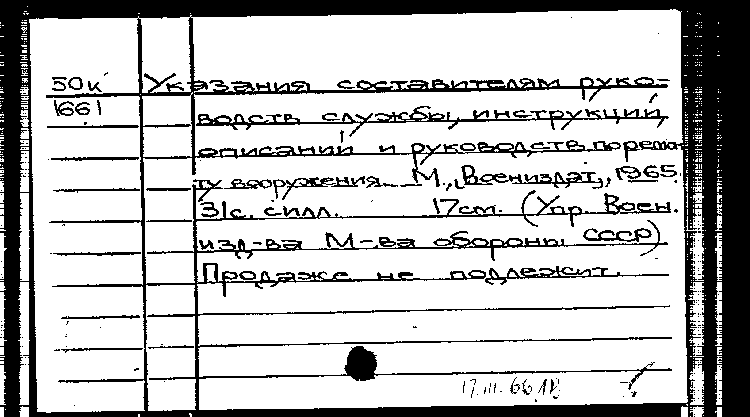 50к Указания составителям руко-
1661 водств службы, инструкций,
описаний и руководств по ремон-
ту вооружения. М., Воениздат, 1965.
31с. с илл. 17см. (Упр. Воен.
изд-ва М-ва обороны СССР)
Продаже не подлежит.
17.III.66